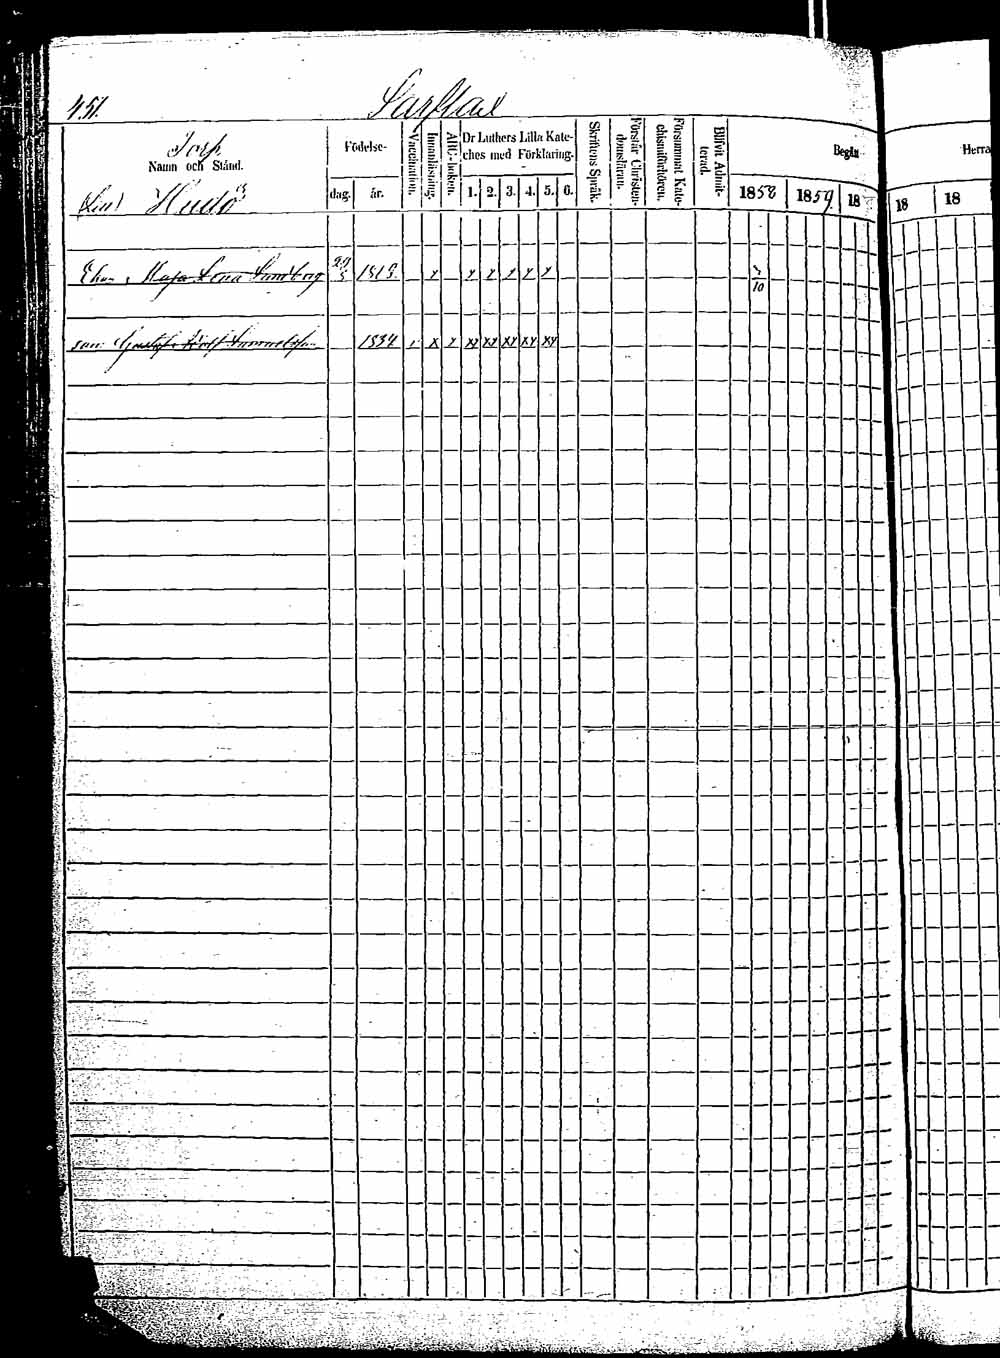 451. Sarflax
Torp
Namn och Stånd.
Födelse-
dag. år.
Vaccination.
Innanläsning.
ABC-boken.
Dr Luthers Lilla Kate-
ches med Förklaring.
1. 2. 3. 4. 5. 6.
Skriftens Språk.
Förstår Christen-
domsläran.
Försummat Kate-
chismiförhören.
Blifvit Admit-
terad.
Begån
1858 1859 18
Herra
18 18
Hudö
Maja Lena 1813 x x x x x x
7/10
son Gustaf 1834 x